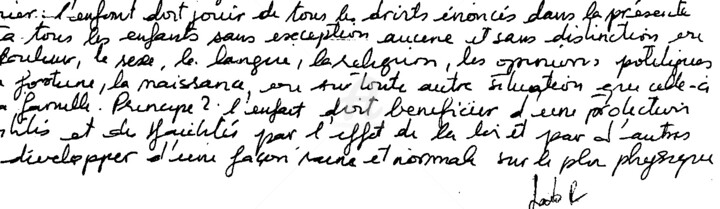 nier: l'enfant doit jouir de tous les droits énoncés dans la présente
à tous les enfants sans exception aucune et sans distinction ou
couleur, le sexe, la langue, la religion, les opinions politiques
fortune, la naissance, ou sur toute autre situation, que celle-ci
famille. Principe 2: l'enfant doit beneficier d'une protection
ilités et des facilités par l'effet de la loi et par d'autres
développer d'une façon saine et normale sur le plan physique